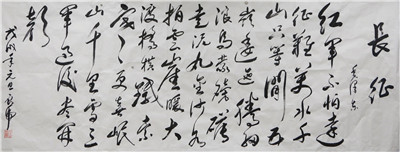 長征
毛澤東
红軍不怕遠
征難萬水千
山只等閒五
嶺逶迤騰細
浪烏蒙磅礴
走泥丸金沙水
拍雲崖暖大
渡橋橫鐵索
寒更喜岷
山千里雪三
軍過後尽開
顏
戊戌年元旦